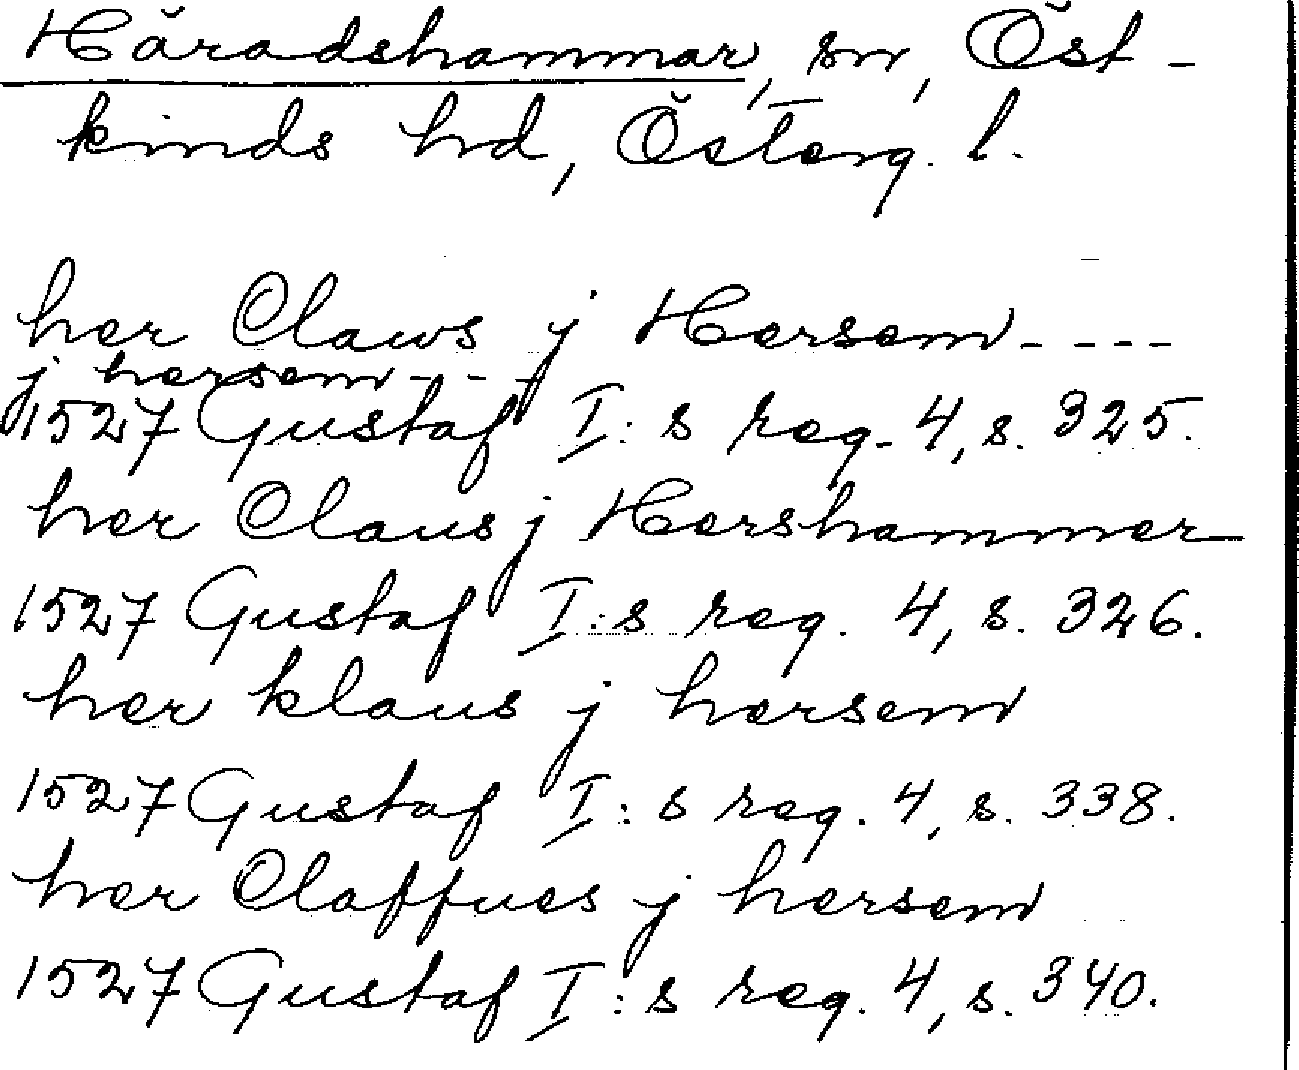 Häradshammar, sn, Öst-
kinds hd, Österg. l.
her Claws j Hersem----
j hersem---
1527 Gustaf I:s reg. 4, s. 325.
her Claus j Hershammer
1527 Gustaf I:s reg. 4, s. 326.
her klaus j hersem
1527 Gustaf I:s reg. 4, s. 338.
her Claffues j hersem
1527 Gustaf I:s reg. 4, s. 340.